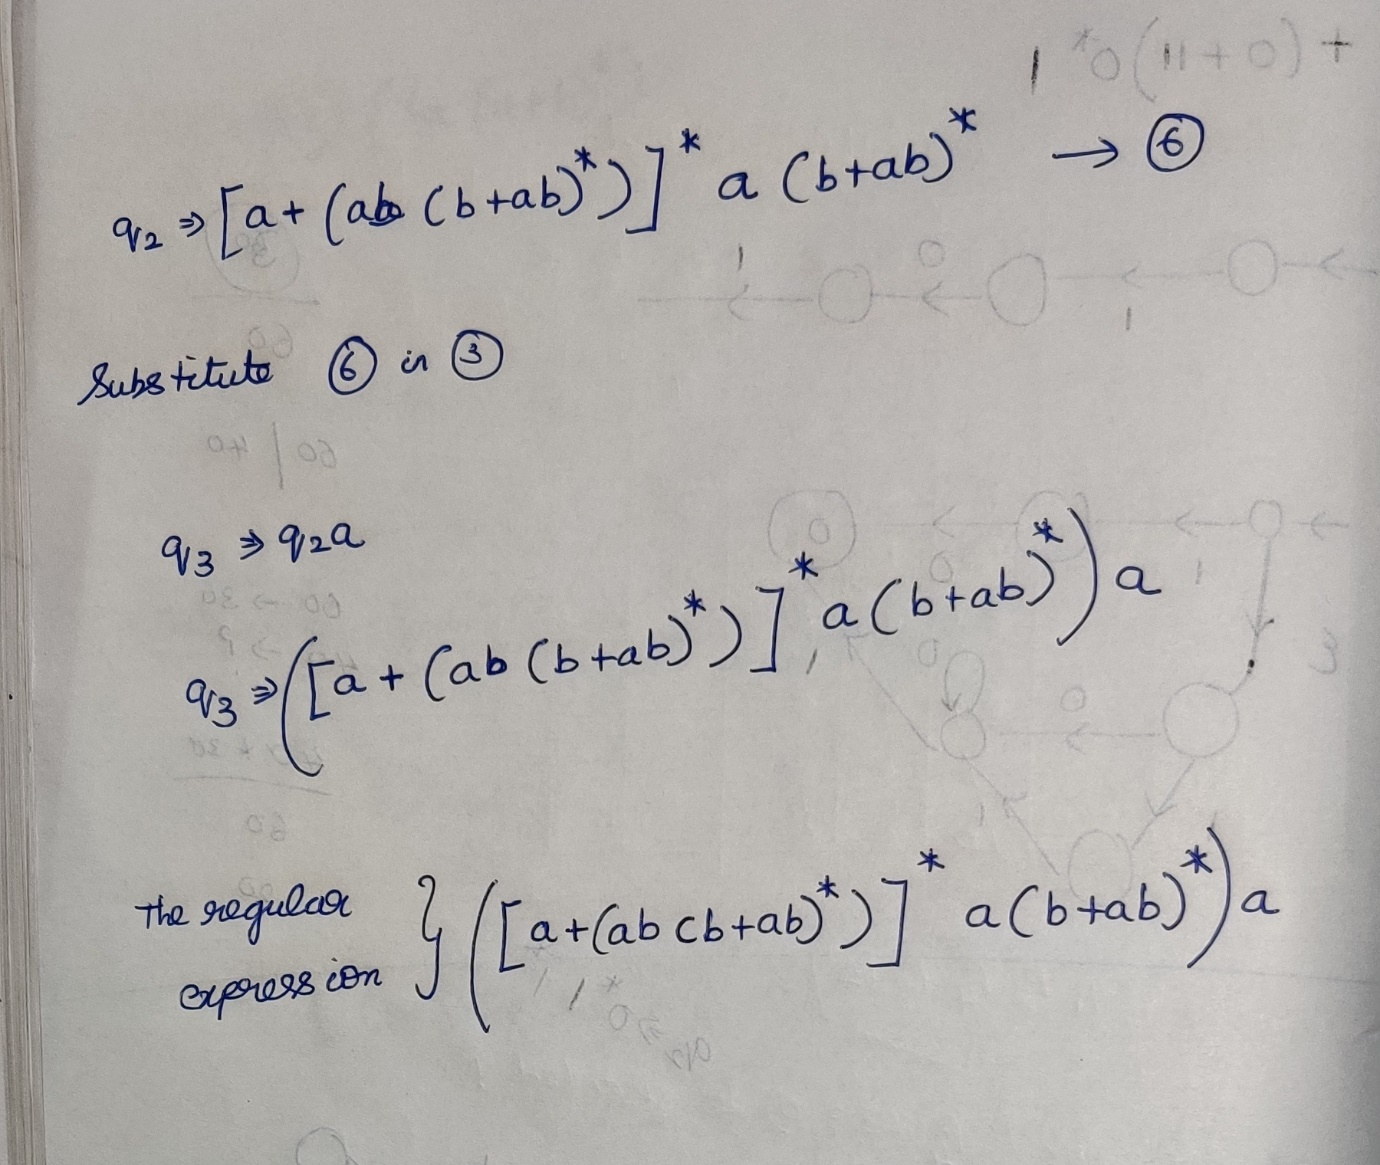 q₂ ⇒ [a + (ab (b+ab)*)]* a (b+ab)* → ⑥
Substitute ⑥ in ③
q₃ ⇒ q₂a
q₃ ⇒ ([a + (ab (b+ab)*)]* a (b+ab)*) a
The regular expression } ([a+(ab cb+ab)*)]* a (b+ab)*) a